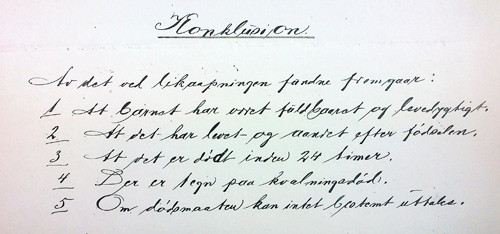 Konklusion.
Av det ved likaapningen fundne fremgaar:
1 At barnet har været fuldbaaret og levedygtigt.
2 At det har levet og aandet efter fødselen.
3 At det er dødt inden 24 timer.
4 Der er tegn paa kvælningsdød.
5 Om dødsmaaten kan intet bestemt uttales.